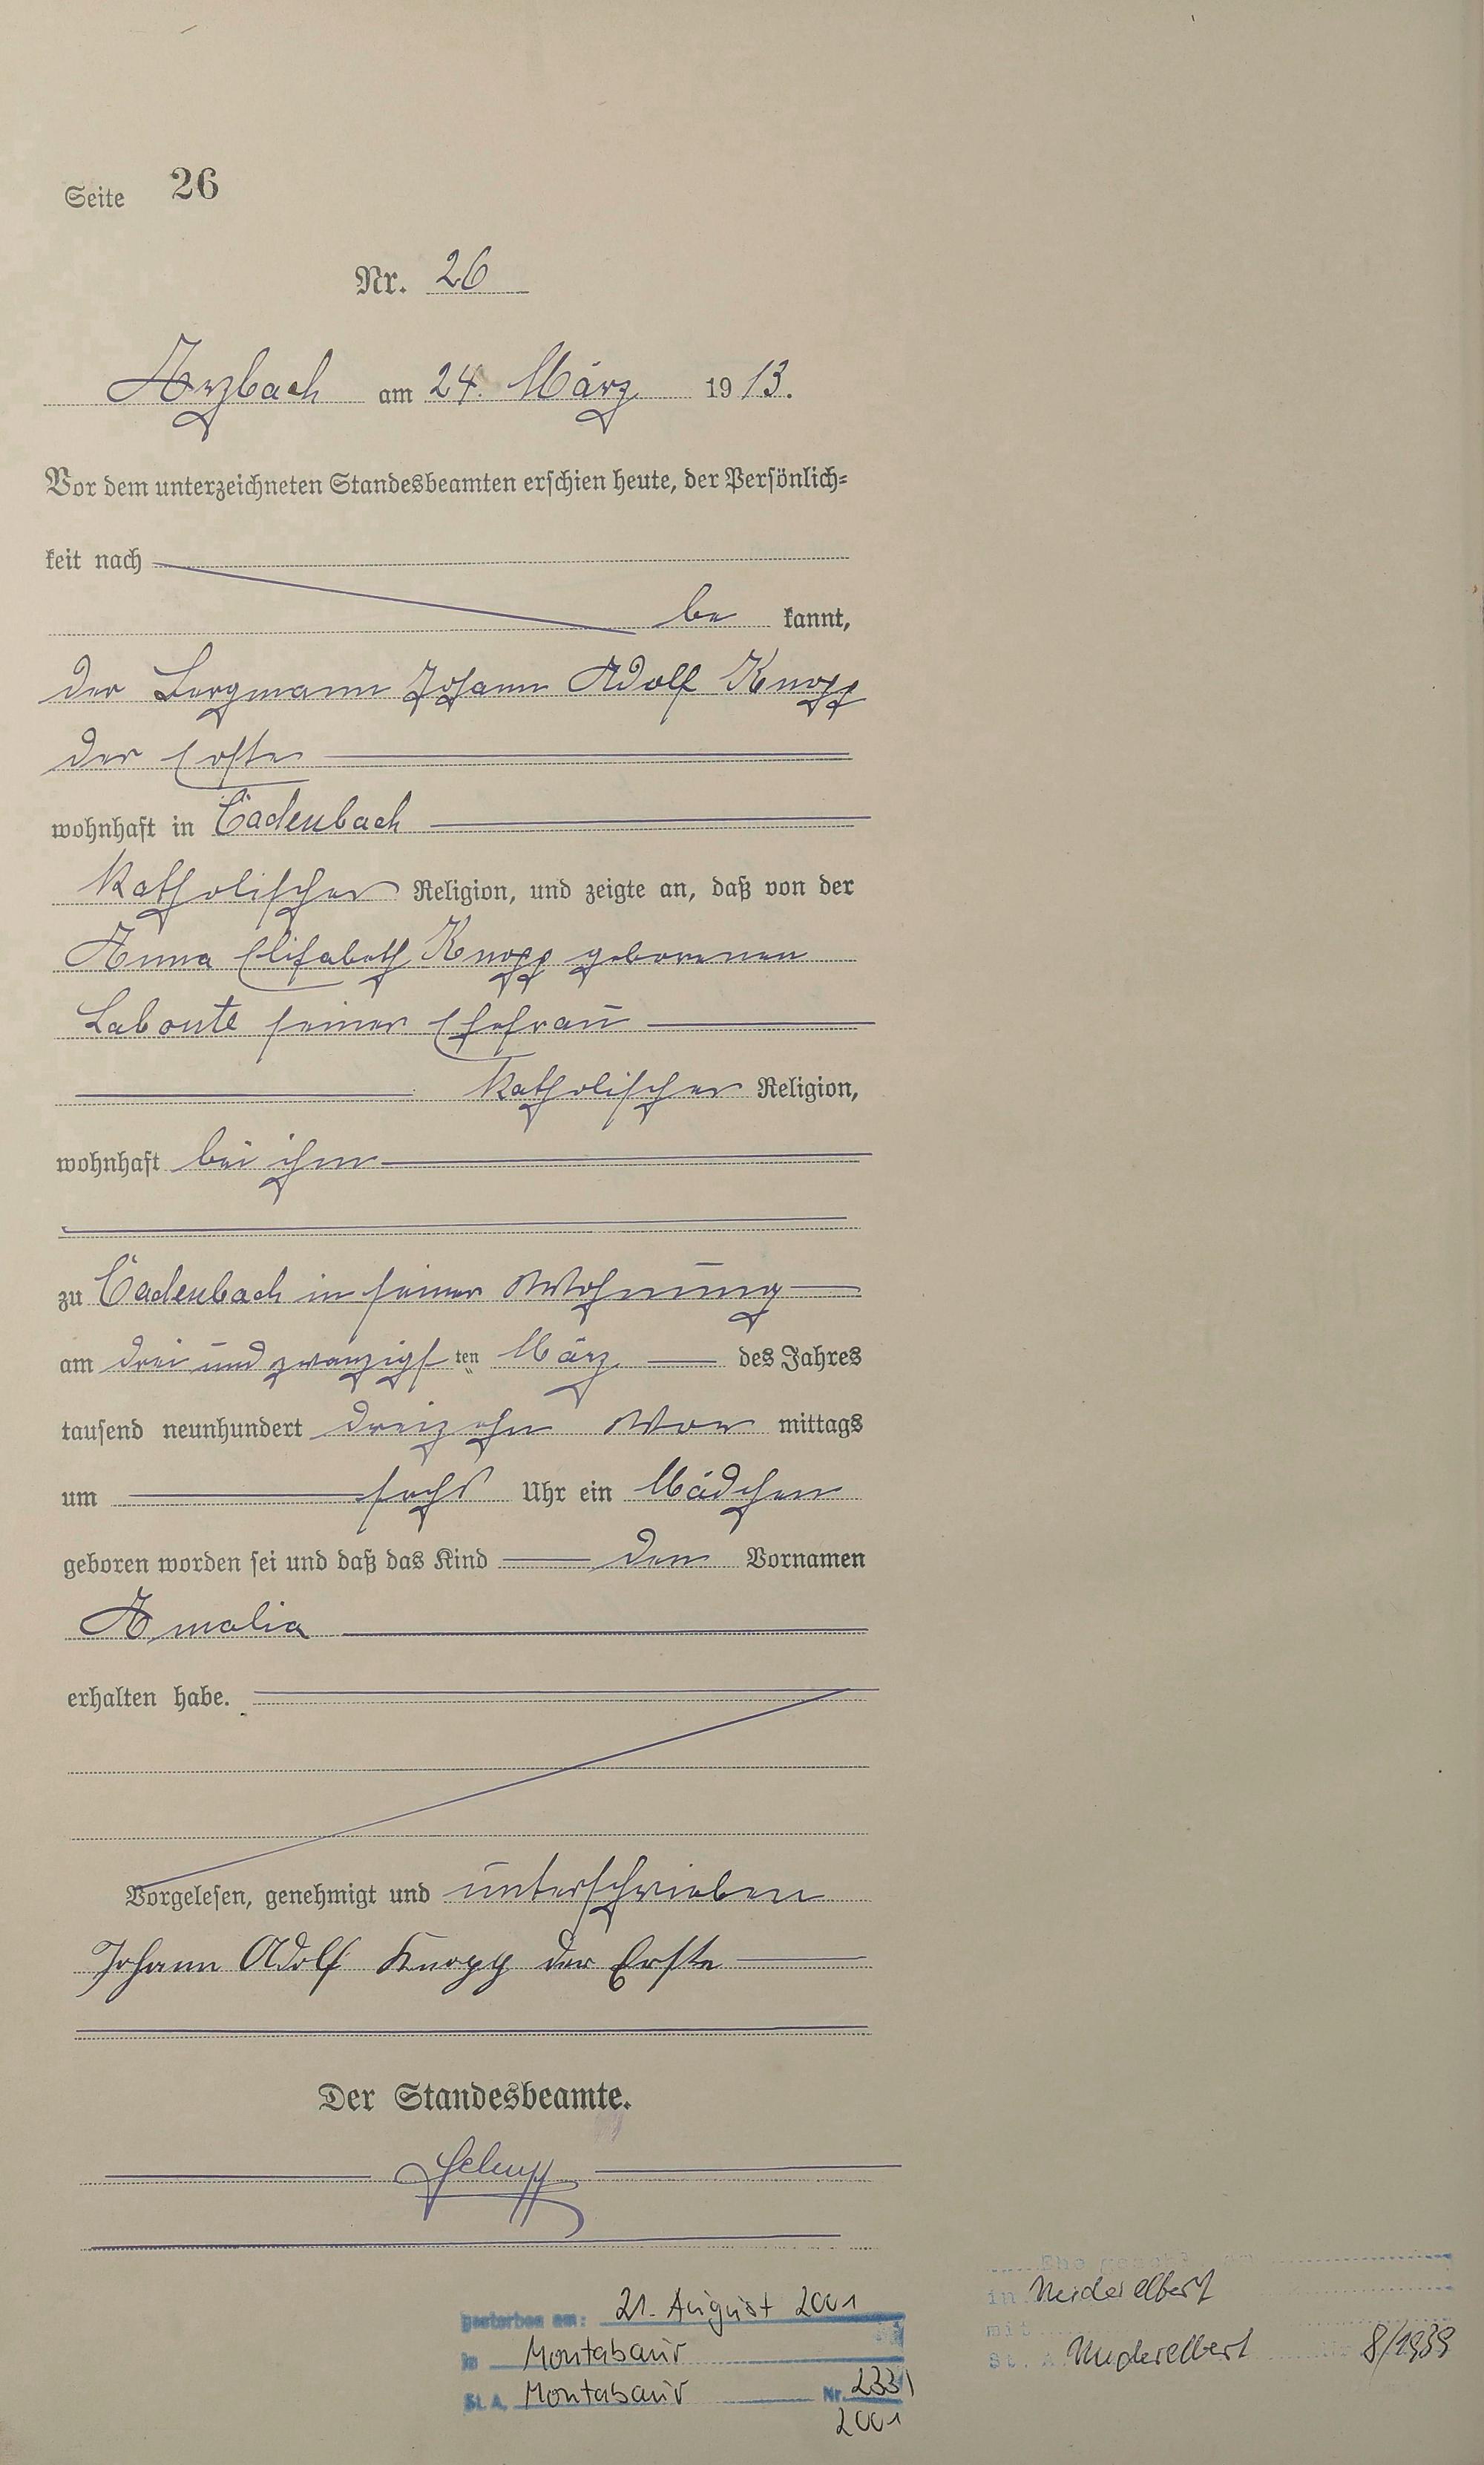 Seite 26
Nr. 26
Arzbach am 24. März 1913.
Vor dem unterzeichneten Standesbeamten erschien heute, der Persönlich=
keit nach
be kannt,
der Bergmann Johann Adolf Knopp
der Erste
wohnhaft in Cadenbach
katholischer Religion, und zeigte an, daß von der
Anna Elisabeth Knopp geborenen
Labonte seiner Ehefrau
katholischer Religion,
wohnhaft bei ihm
zu Cadenbach in seiner Wohnung
am drei und zwanzigsten März des Jahres
tausend neunhundert dreizehn Vor mittags
um sechs Uhr ein Mädchen
geboren worden sei und daß das Kind den Vornamen
Amalia
erhalten habe.
Vorgelesen, genehmigt und unterschrieben
Johann Adolf Knopp der Erste
Der Standesbeamte.
gestorben am: 21. August 2001
in Montabaur
St. A. Montabaur Nr. 233
2001
in Niederelbert
mit
St. A. Niederelbert 8/1939